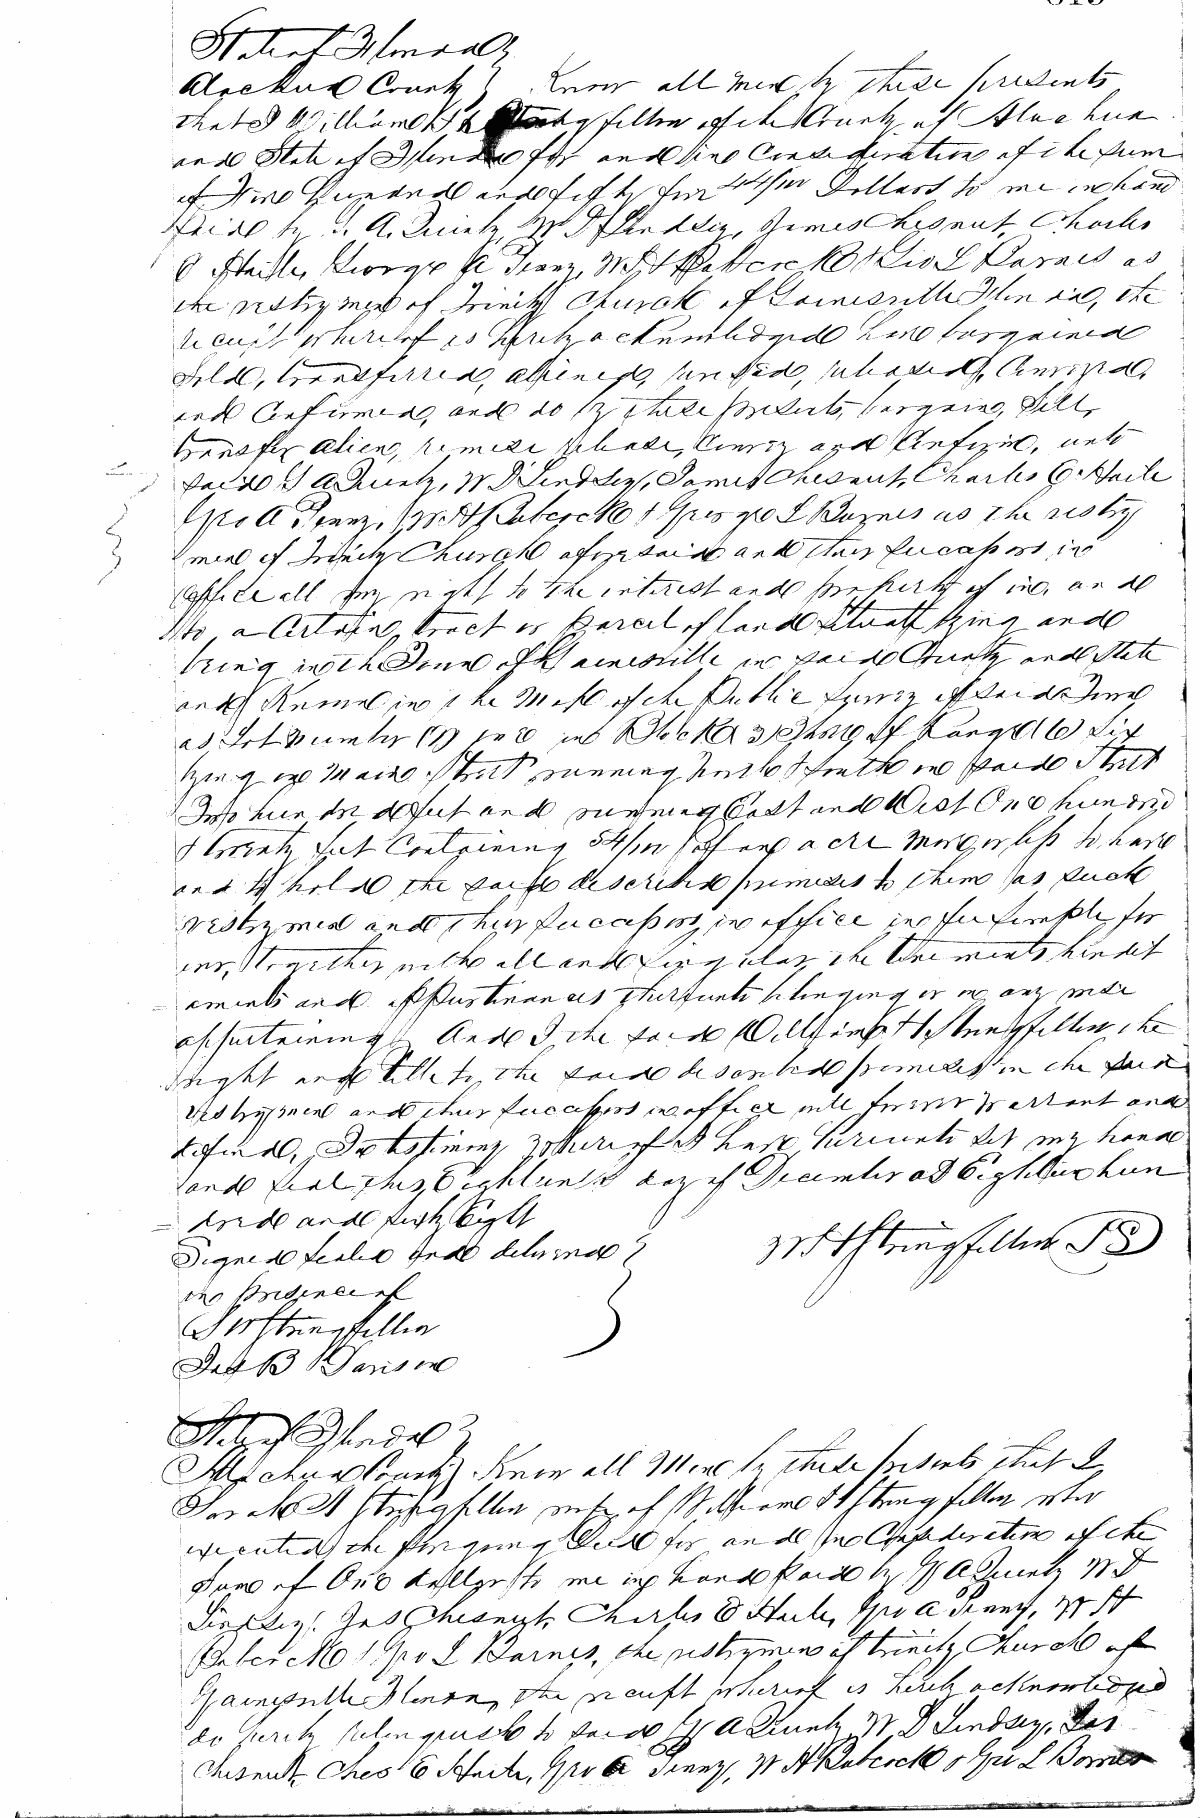 State of Florida
Alachua County } Know all men by these presents
that I William H Stringfellow of the County of Alachua
and State of Florida for and in Consideration of the sum
of Five Hundred and fifty four 44/100 Dollars to me in hand
paid by A. Quinby, W D Lindsey, James Chesnut, Charles
E Haile, George A Penny, W H Babcock & Geo L Barnes as
the vestrymen of Trinity Church of Gainesville Florida, the
receipt whereof is hereby acknowledged have bargained
Sold, transferred, aliened, remised, released, Conveyed,
and Confirmed, and do by these presents, bargain, Sell,
transfer alien, remise release, Convey and Confirm, unto
said A Quinby, W D Lindsey, James Chesnut, Charles E. Haile
Geo A Penny, W H Babcock & George L Barnes as the vestry
men of Trinity Church aforesaid and their successors in
office all my right to the interest and property of in, and
to, a Certain tract or parcel of land Situate lying and
being in the Town of Gainesville in said County and State
and Known in the Map of the Public Survey of said Town
as Lot Number (2) two in Block 3 Three of Range (6) Six
lying on Main Street running North & South on said Street
Two hundred feet and running East and West One hundred
& twenty feet Containing 54/100 of an acre More or less to have
and to hold the said described premises to them as such
vestrymen and their successors in office in fee simple for
ever, together with all and singular, the tenements heredit
aments and appurtenances thereunto belonging or in any wise
appertaining. And I the said William H Stringfellow, the
right and title to the said described premises in the said
vestrymen and their successors in office will forever warrant and
defend, In testimony whereof I have hereunto set my hand
and seal this Eighteenth day of December AD Eighteen hun
dred and sixty Eight
Signed sealed and delivered } W H Stringfellow LS
in presence of
S W Stringfellow
Jas B Dawson
State of Florida
Alachua County } Know all Men by these presents that I,
Sarah A Stringfellow wife of William H Stringfellow who
executed the foregoing Deed for and in Consideration of the
Sum of One dollar to me in hand Paid by A Quinby W D
Lindsey, Jas Chesnut, Charles E Haile, Geo A Penny, W H
Babcock & Geo L Barnes, the vestrymen of Trinity Church of
Gainesville Florida, the receipt whereof is hereby acknowledged
do hereby relinquish to said A Quinby, W D Lindsey, Jas
Chesnut, Chas E Haile, Geo A Penny, W H Babcock & Geo L Barnes